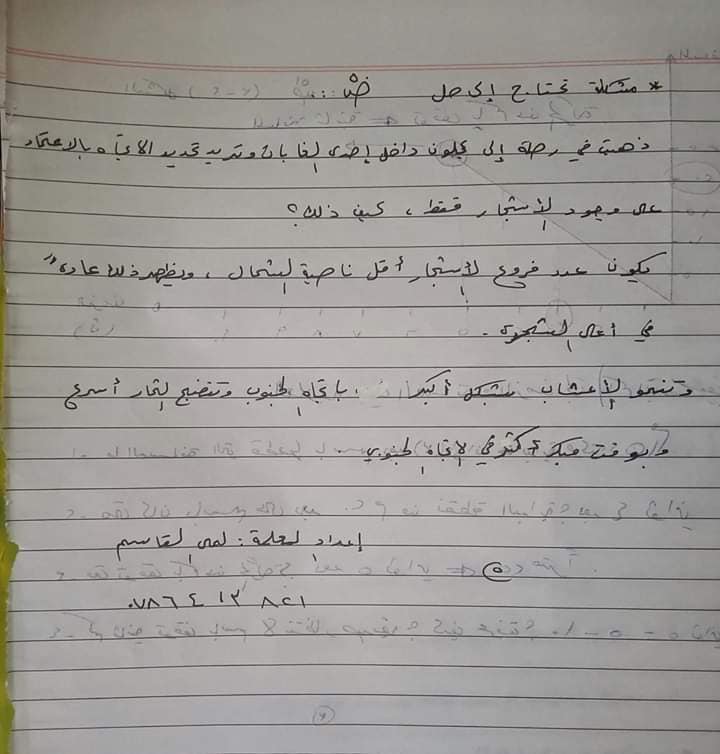 * مشكلة تحتاج إلى حل
ذهبت في رحلة إلى عجلون داخل إحدى الغابات وتريد تحديد الاتجاه بالاعتماد
على وجود الأشجار فقط، كيف ذلك؟
يكون عدد فروع الأشجار أقل ناحية الشمال، ويظهر ذلك عادةً
في أعلى الشجرة.
وتنمو الأعشاب بشكل أكبر باتجاه الجنوب وتنضج الثمار أسرع
وبوقت مبكر أكثر في الاتجاه الجنوبي.
إعداد المعلمة: لمى القاسم
٠٧٨٦٤١٣٨٢١